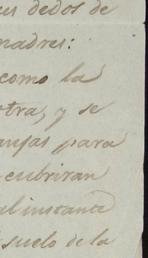 us dedos de
madres:
como la
tra, y se
anjas para
cubriran
al instante
suelo de la